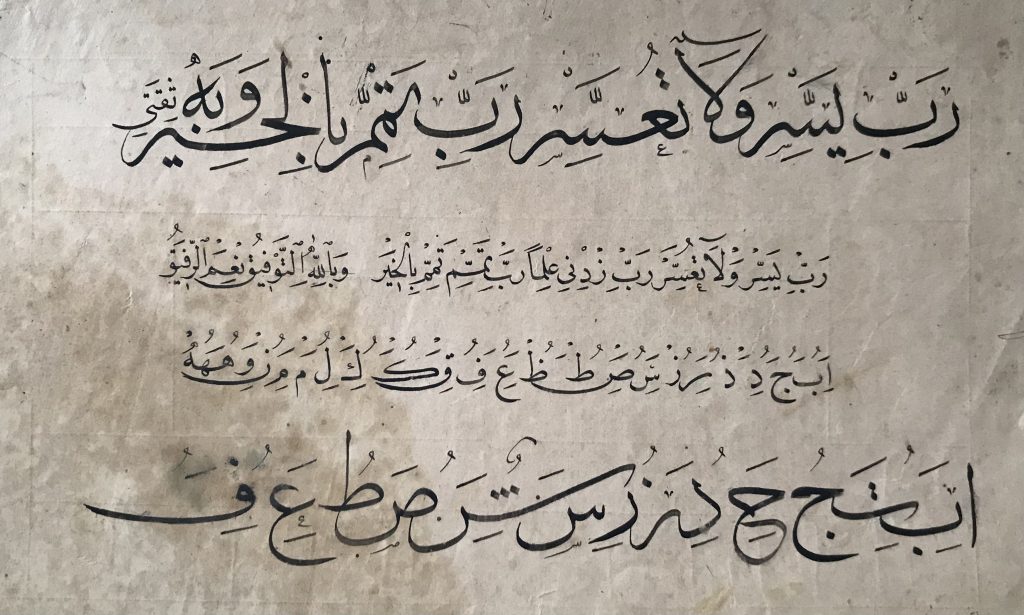 رَبِّ يَسِّرْ وَلَا تُعَسِّرْ رَبِّ تَمِّمْ بِالْخَيْرِ وَبِهِ ثِقَتِي
رَبِّ يَسِّرْ وَلَا تُعَسِّرْ رَبِّ زِدْنِي عِلْمًا رَبِّ تَمِّمْ تَمِّمْ بِالْخَيْرِ وَبِاللّٰهِ التَّوْفِيقُ نِعْمَ الرَّفِيقُ
ا ب ج د ذ ر ز س ص ط ظ ع ف ق ك ك ل م م ن و ه ه
ا ب ت ج ح د ر ز س ش ص ط ع ف